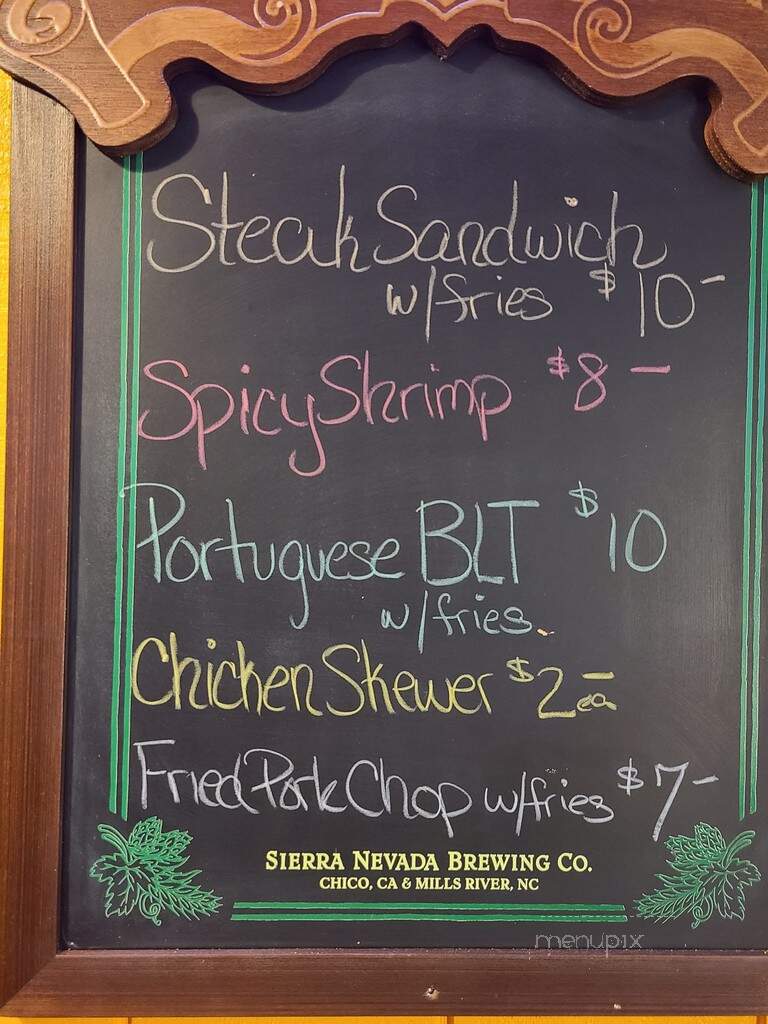 Steak Sandwich
w/fries $10-
Spicy Shrimp $8-
Portuguese BLT $10
w/fries.
Chicken Skewer $2- ea
Fried Pork Chop w/fries $7-
SIERRA NEVADA BREWING CO.
CHICO, CA & MILLS RIVER, NC
menupix